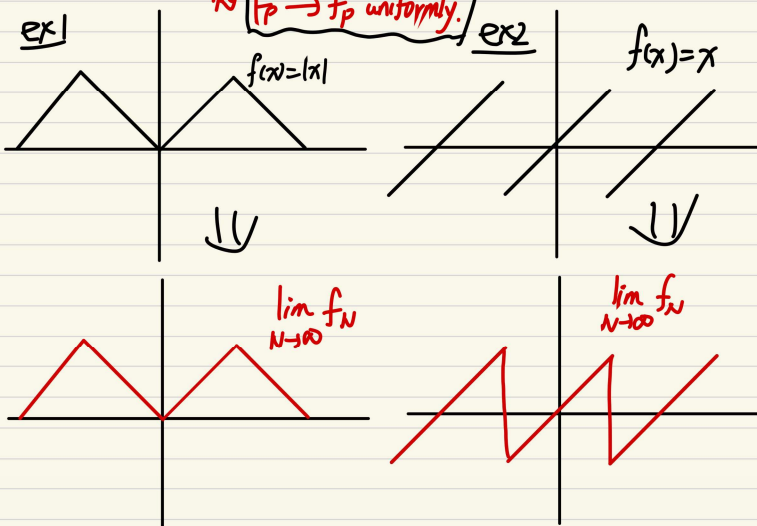 F_p → f_p uniformly.
ex1
f(x)=|x|
ex2
f(x)=x
lim f_N
N→∞
lim f_N
N→∞